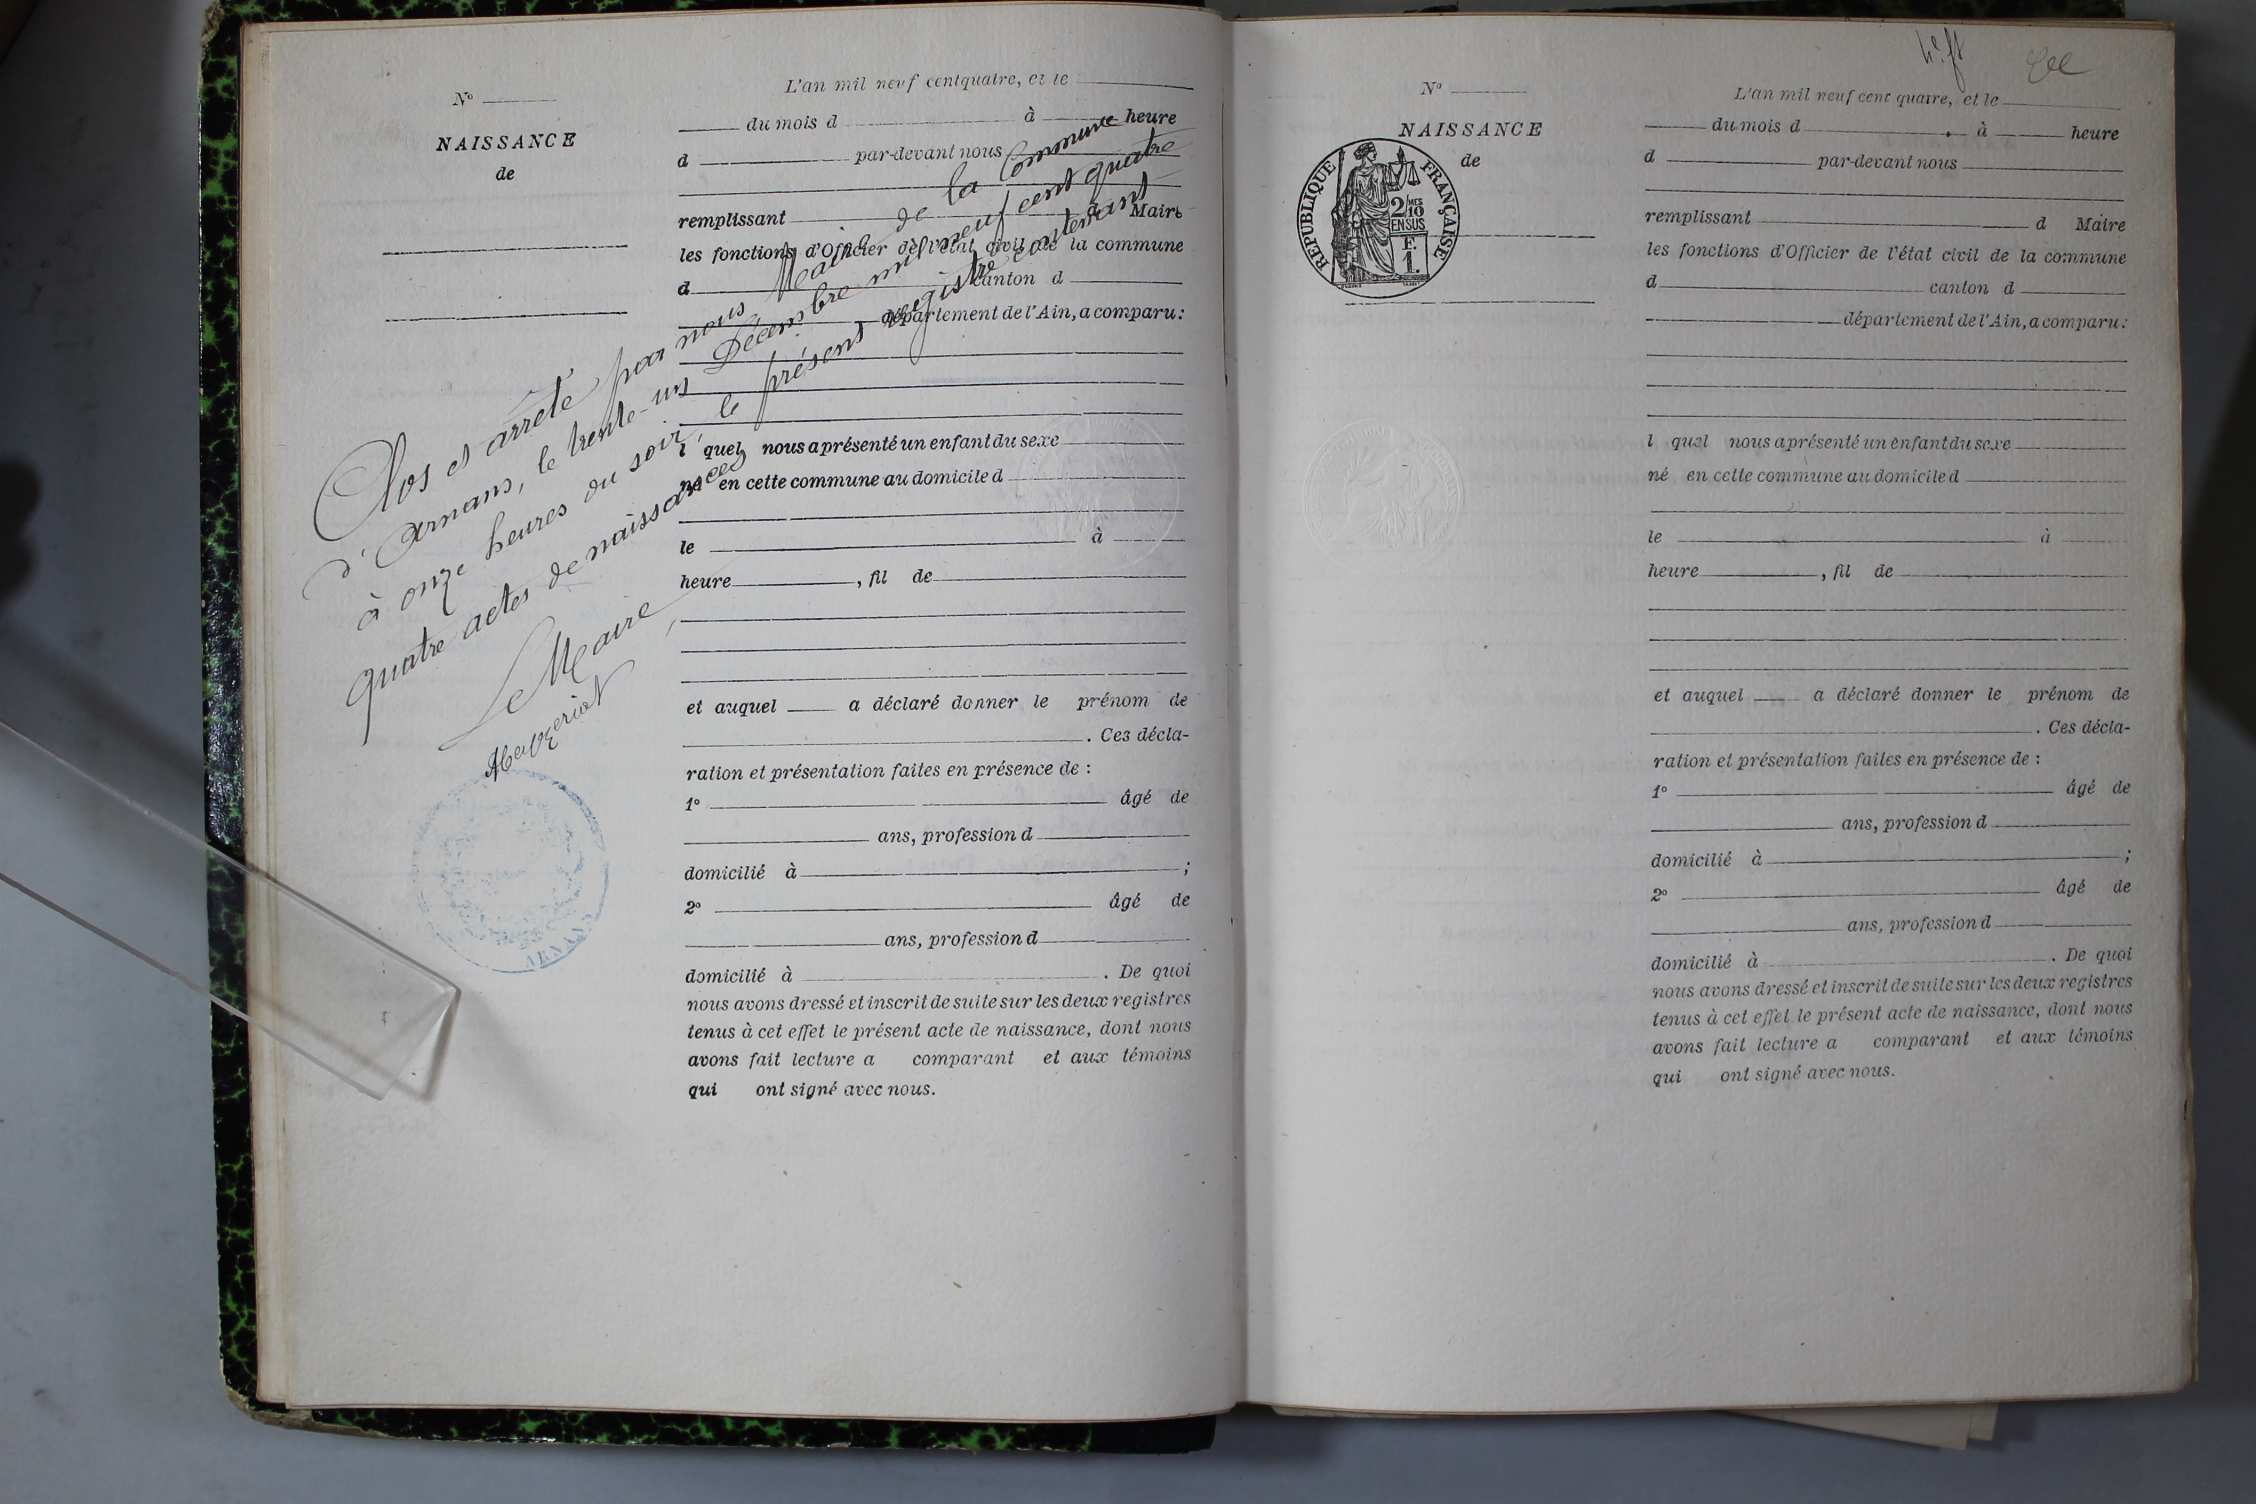 N°
NAISSANCE
de
L'an mil neuf cent quatre, et le
du mois d à heure
d par-devant nous
remplissant d Maire
les fonctions d'Officier de l'état civil de la commune
d canton d
département de l'Ain, a comparu:
l quel nous a présenté un enfant du sexe
né en cette commune au domicile d
le à
heure , fil de
et auquel a déclaré donner le prénom de
. Ces décla-
ration et présentation faites en présence de :
1° âgé de
ans, profession d
domicilié à ;
2° âgé de
ans, profession d
domicilié à . De quoi
nous avons dressé et inscrit de suite sur les deux registres
tenus à cet effet le présent acte de naissance, dont nous
avons fait lecture a comparant et aux témoins
qui ont signé avec nous.
Clos et arrêté par nous Maire de la Commune
d'Arnans, le trente-un Décembre mil neuf cent quatre
à onze heures du soir, le présent registre contenant
quatre actes de naissances
Le Maire
ARNANS
N°
NAISSANCE
de
RÉPUBLIQUE FRANÇAISE
2/10
EN SUS
F.
1.
L'an mil neuf cent quatre, et le
du mois d à heure
d par-devant nous
remplissant d Maire
les fonctions d'Officier de l'état civil de la commune
d canton d
département de l'Ain, a comparu:
l quel nous a présenté un enfant du sexe
né en cette commune au domicile d
le à
heure , fil de
et auquel a déclaré donner le prénom de
. Ces décla-
ration et présentation faites en présence de :
1° âgé de
ans, profession d
domicilié à ;
2° âgé de
ans, profession d
domicilié à . De quoi
nous avons dressé et inscrit de suite sur les deux registres
tenus à cet effet le présent acte de naissance, dont nous
avons fait lecture a comparant et aux témoins
qui ont signé avec nous.